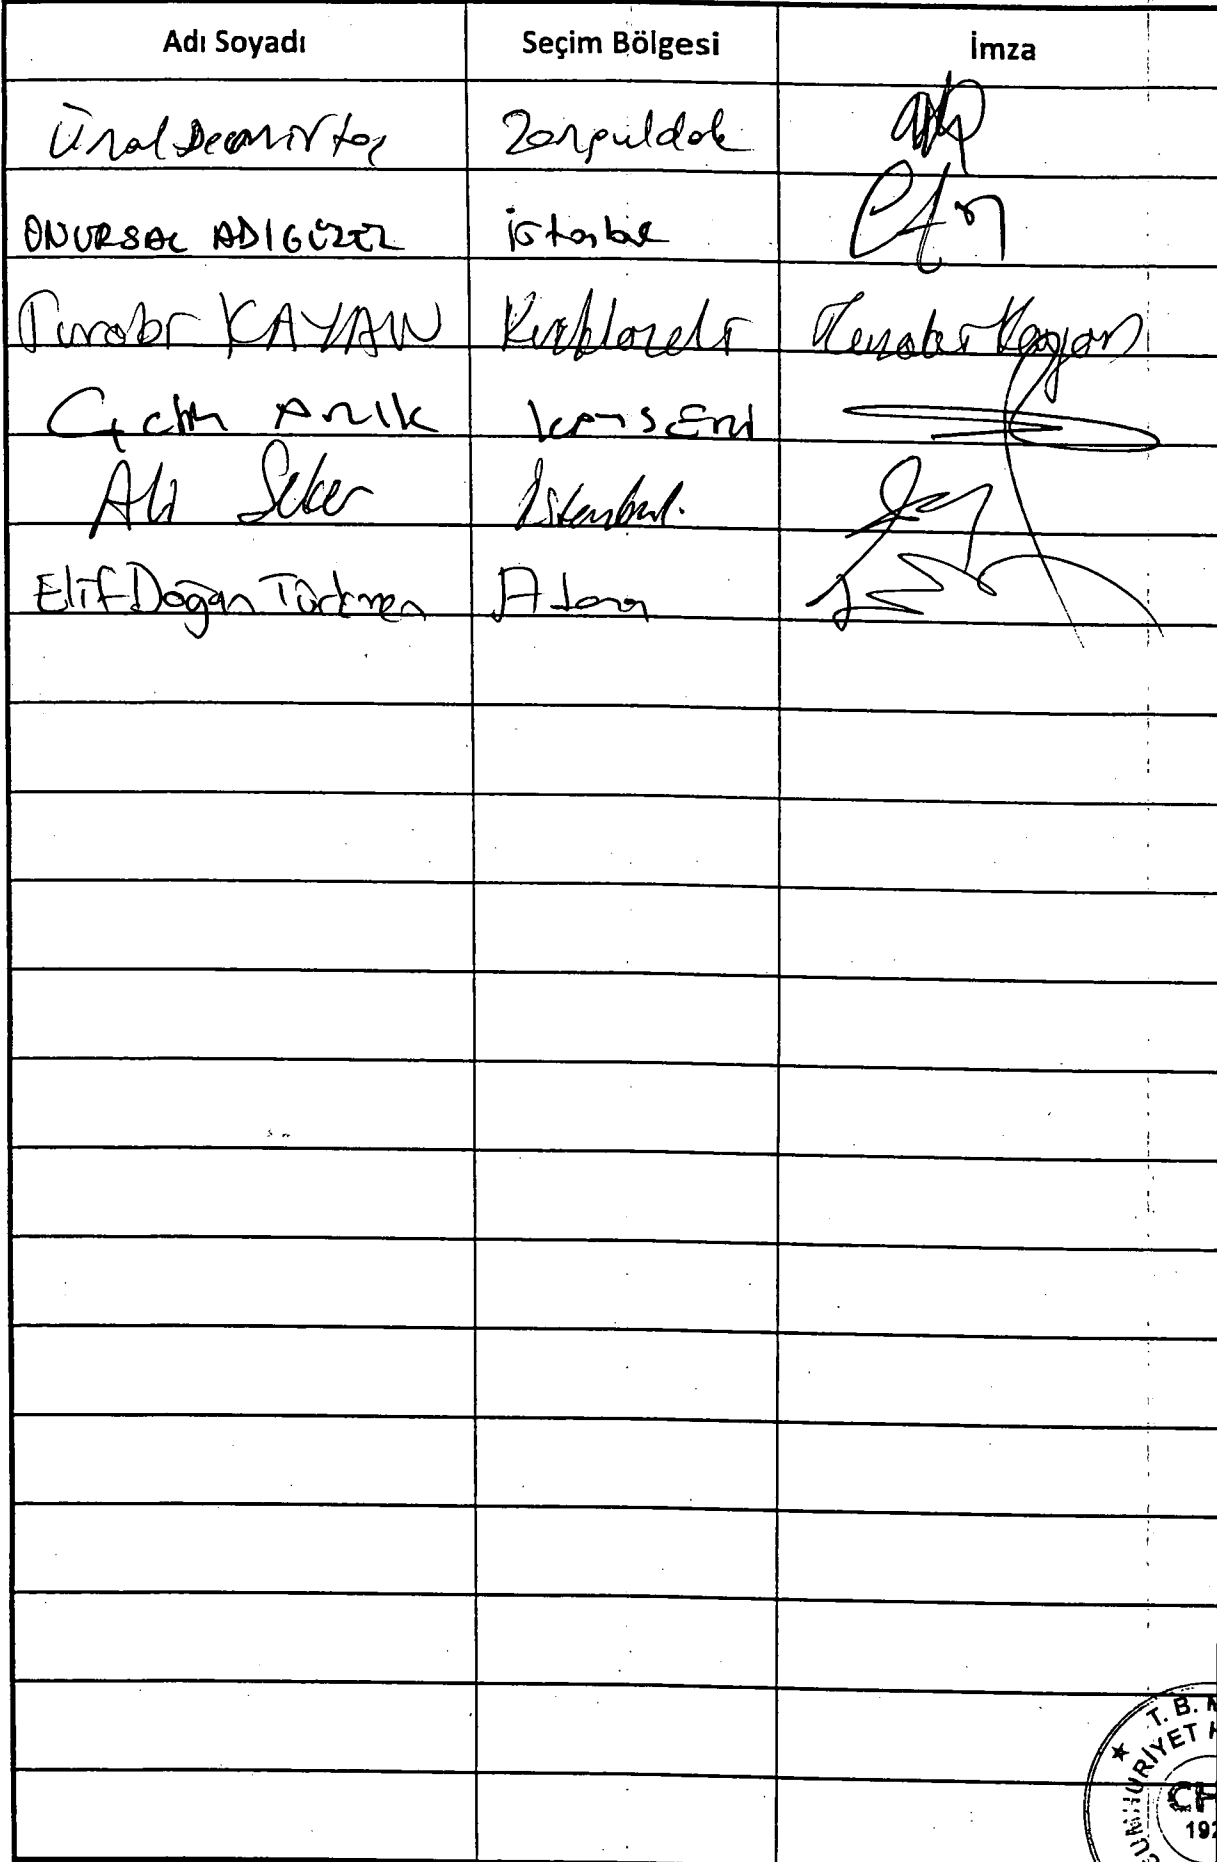 Adı Soyadı Seçim Bölgesi İmza
Ünal Demirtaş Zonguldak
ONURSAL ADIGÜZEL İstanbul
Turabi KAYAN Kırklareli Turabi Kayan
Çetin ARIK KAYSERİ
Ali Şeker İstanbul.
Elif Doğan Türkmen Adana
T. B. M
CUMHURİYET H
CH
192